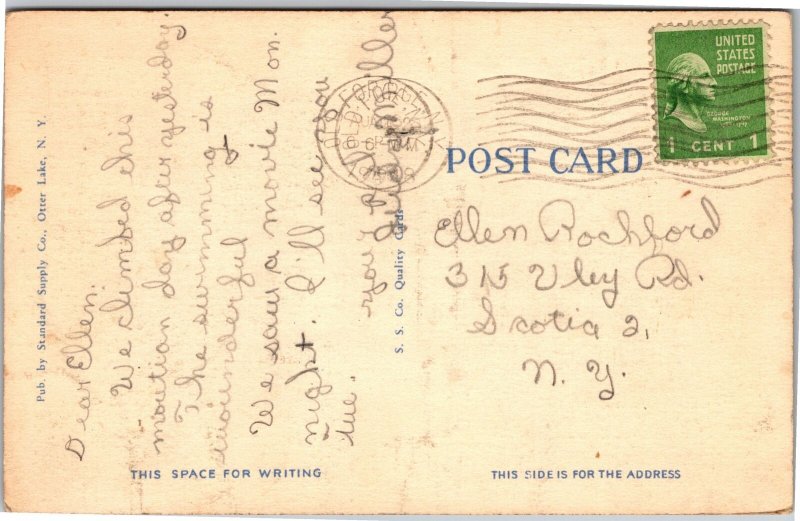 Pub. by Standard Supply Co., Otter Lake, N. Y.
Dear Ellen.
We climbed this
moution day after yesterday.
The swimming is
wounderful
We saw a movie Mon.
night. I'll see you
tue.
your
S. S. Co. Quality Cards
OLD FORGE, N.Y.
POST CARD
UNITED
STATES
POSTAGE
GEORGE
WASHINGTON
1 CENT 1
Ellen Rochford
315 Vley Rd.
Scotia 2,
N. Y.
THIS SPACE FOR WRITING
THIS SIDE IS FOR THE ADDRESS